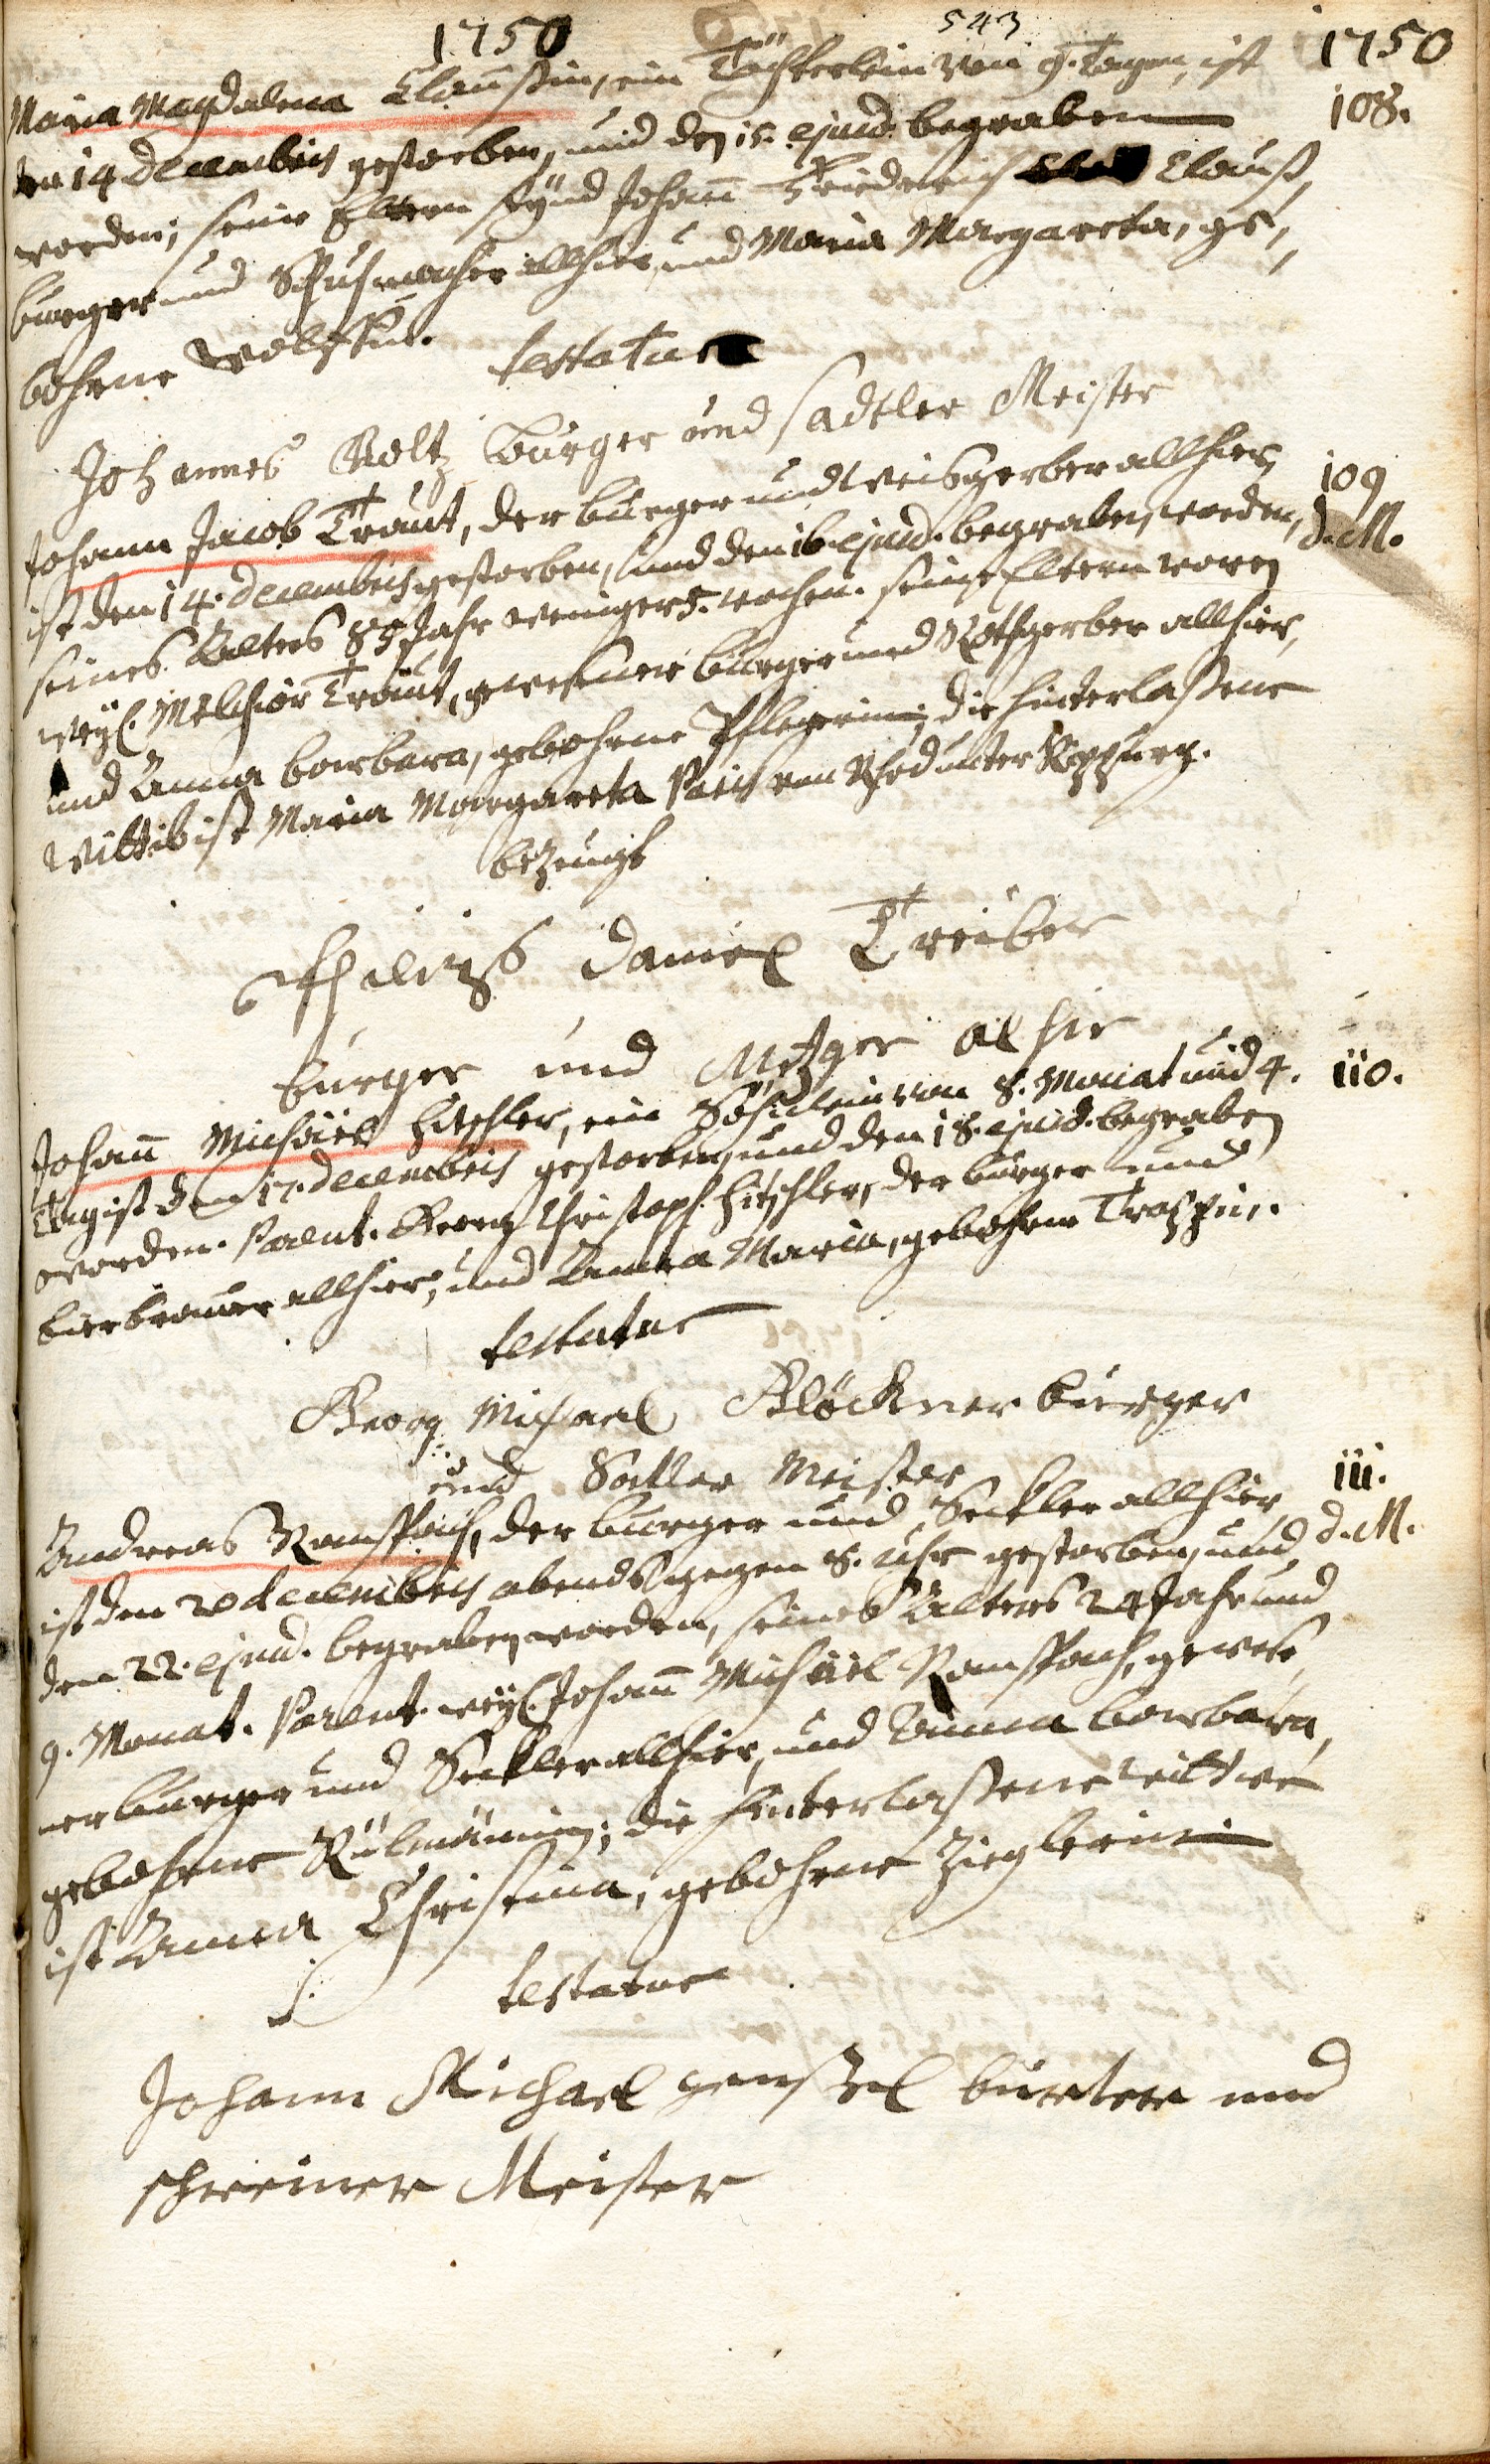 1750 543 1750
Maria Magdalena Claußin, ein Töchterlein von 9. Tagen, ist 108.
den 14 Decembris gestorben, und den 15. ejusd. begraben
worden; seine Eltern seynd Johann Friederich Clauß,
burger und Schuhmacher allhier, und Maria Margareta, ge,
bohrne Wolffin. testatur
Johannes Voltz burger und sadtler Meister
Johann Jacob Traut, der burger und Weisgerber allhier, 109
ist den 14. Decembris gestorben, und den 16. ejusd. begraben worden, d. M.
seines Alters 85 Jahr weniger 5. wochen. seine Eltern waren
weyl. Melchior Traut, gewesener burger und Rothgerber allhier,
und Anna barbara, gebohrne Pflegerin; die hinterlaßene
Wittib ist Maria Margareta von Rhod unter
bezeugt
Daniel Treiber
burger und Metzger alhir
Johann Michäel Hitschler, ein Söhnlein von 8. Monat und 4. 110.
Tag ist den 17. Decembris gestorben, und den 18. ejusd. begraben
worden. Parent. Georg Christoph Hitschler, der burger und
bierbrauer allhier, und Anna Maria, gebohrne
testatur
Georg Michael Klöckner burger
und Sattler Meister
Andreas Ramspach, der burger und Seckler allhier, 111.
ist den 20 Decembris abends gegen 8. Uhr gestorben, und d. M.
den 22. ejusd. begraben worden, seines Alters 24 Jahr und
9. Monat. Parent. weyl. Johann Michäel Ramspach, gewese,
ner burger und Seckler allhier, und Anna barbara,
gebohrne; die hinterlaßene wittwe
ist Anna Christina, gebohrne Zieglerin
testatur
Johann Michael burger und
schreiner Meister